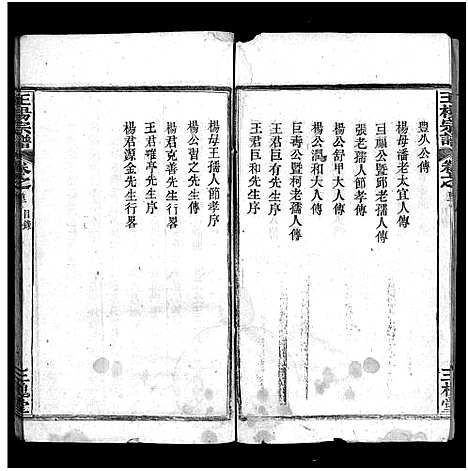 王楊宗譜
卷之
三槐堂
豐久公傳
楊母潘老太宜人傳
張老孺人節孝傳
楊公舒甲大人傳
楊公潤和大人傳
巨壽公暨柯老孺人傳
王君巨有先生序
王君巨和先生序
楊母王孺人節孝序
楊公習之先生傳
楊君克善先生行畧
王君確亭先生序
楊君源金先生行畧
王楊宗譜
卷之
目錄
三槐堂